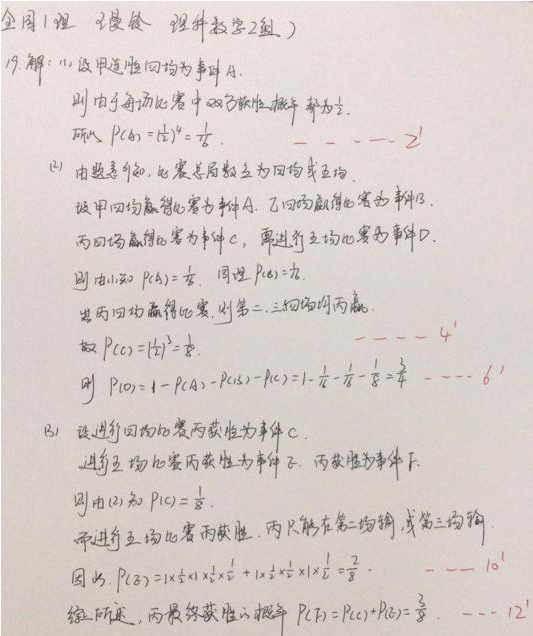 全国1理 理科数学2组)
19.解:(1)设甲连胜四场为事件A.
则由于每场比赛中双方获胜概率都为1/2.
所以 P(A)=(1/2)^4=1/16. - - - - - 2'
(2) 由题意可知,比赛总局数应为四场或五场.
设甲四场赢得比赛为事件A.乙四场赢得比赛为事件B.
丙四场赢得比赛为事件C,需进行五场比赛为事件D.
则由(1)知P(A)=1/16.同理P(B)=1/16.
若丙四场赢得比赛,则第二、三、四场均丙赢.
故 P(C)=(1/2)^3=1/8. - - - - 4'
则 P(D)=1-P(A)-P(B)-P(C)=1-1/16-1/16-1/8=3/4 - - - - 6'
(3) 设进行四场比赛丙获胜为事件C.
进行五场比赛丙获胜为事件E.丙获胜为事件F.
则由(2)知P(C)=1/8.
而进行五场比赛丙获胜.丙只能在第二场输,或第三场输
因此.P(E)=1×1/2×1×1/2×1/2+1×1/2×1/2×1×1/2=2/8. - - - 10'
综上所述,丙最终获胜的概率 P(F)=P(C)+P(E)=3/8. - - - 12'